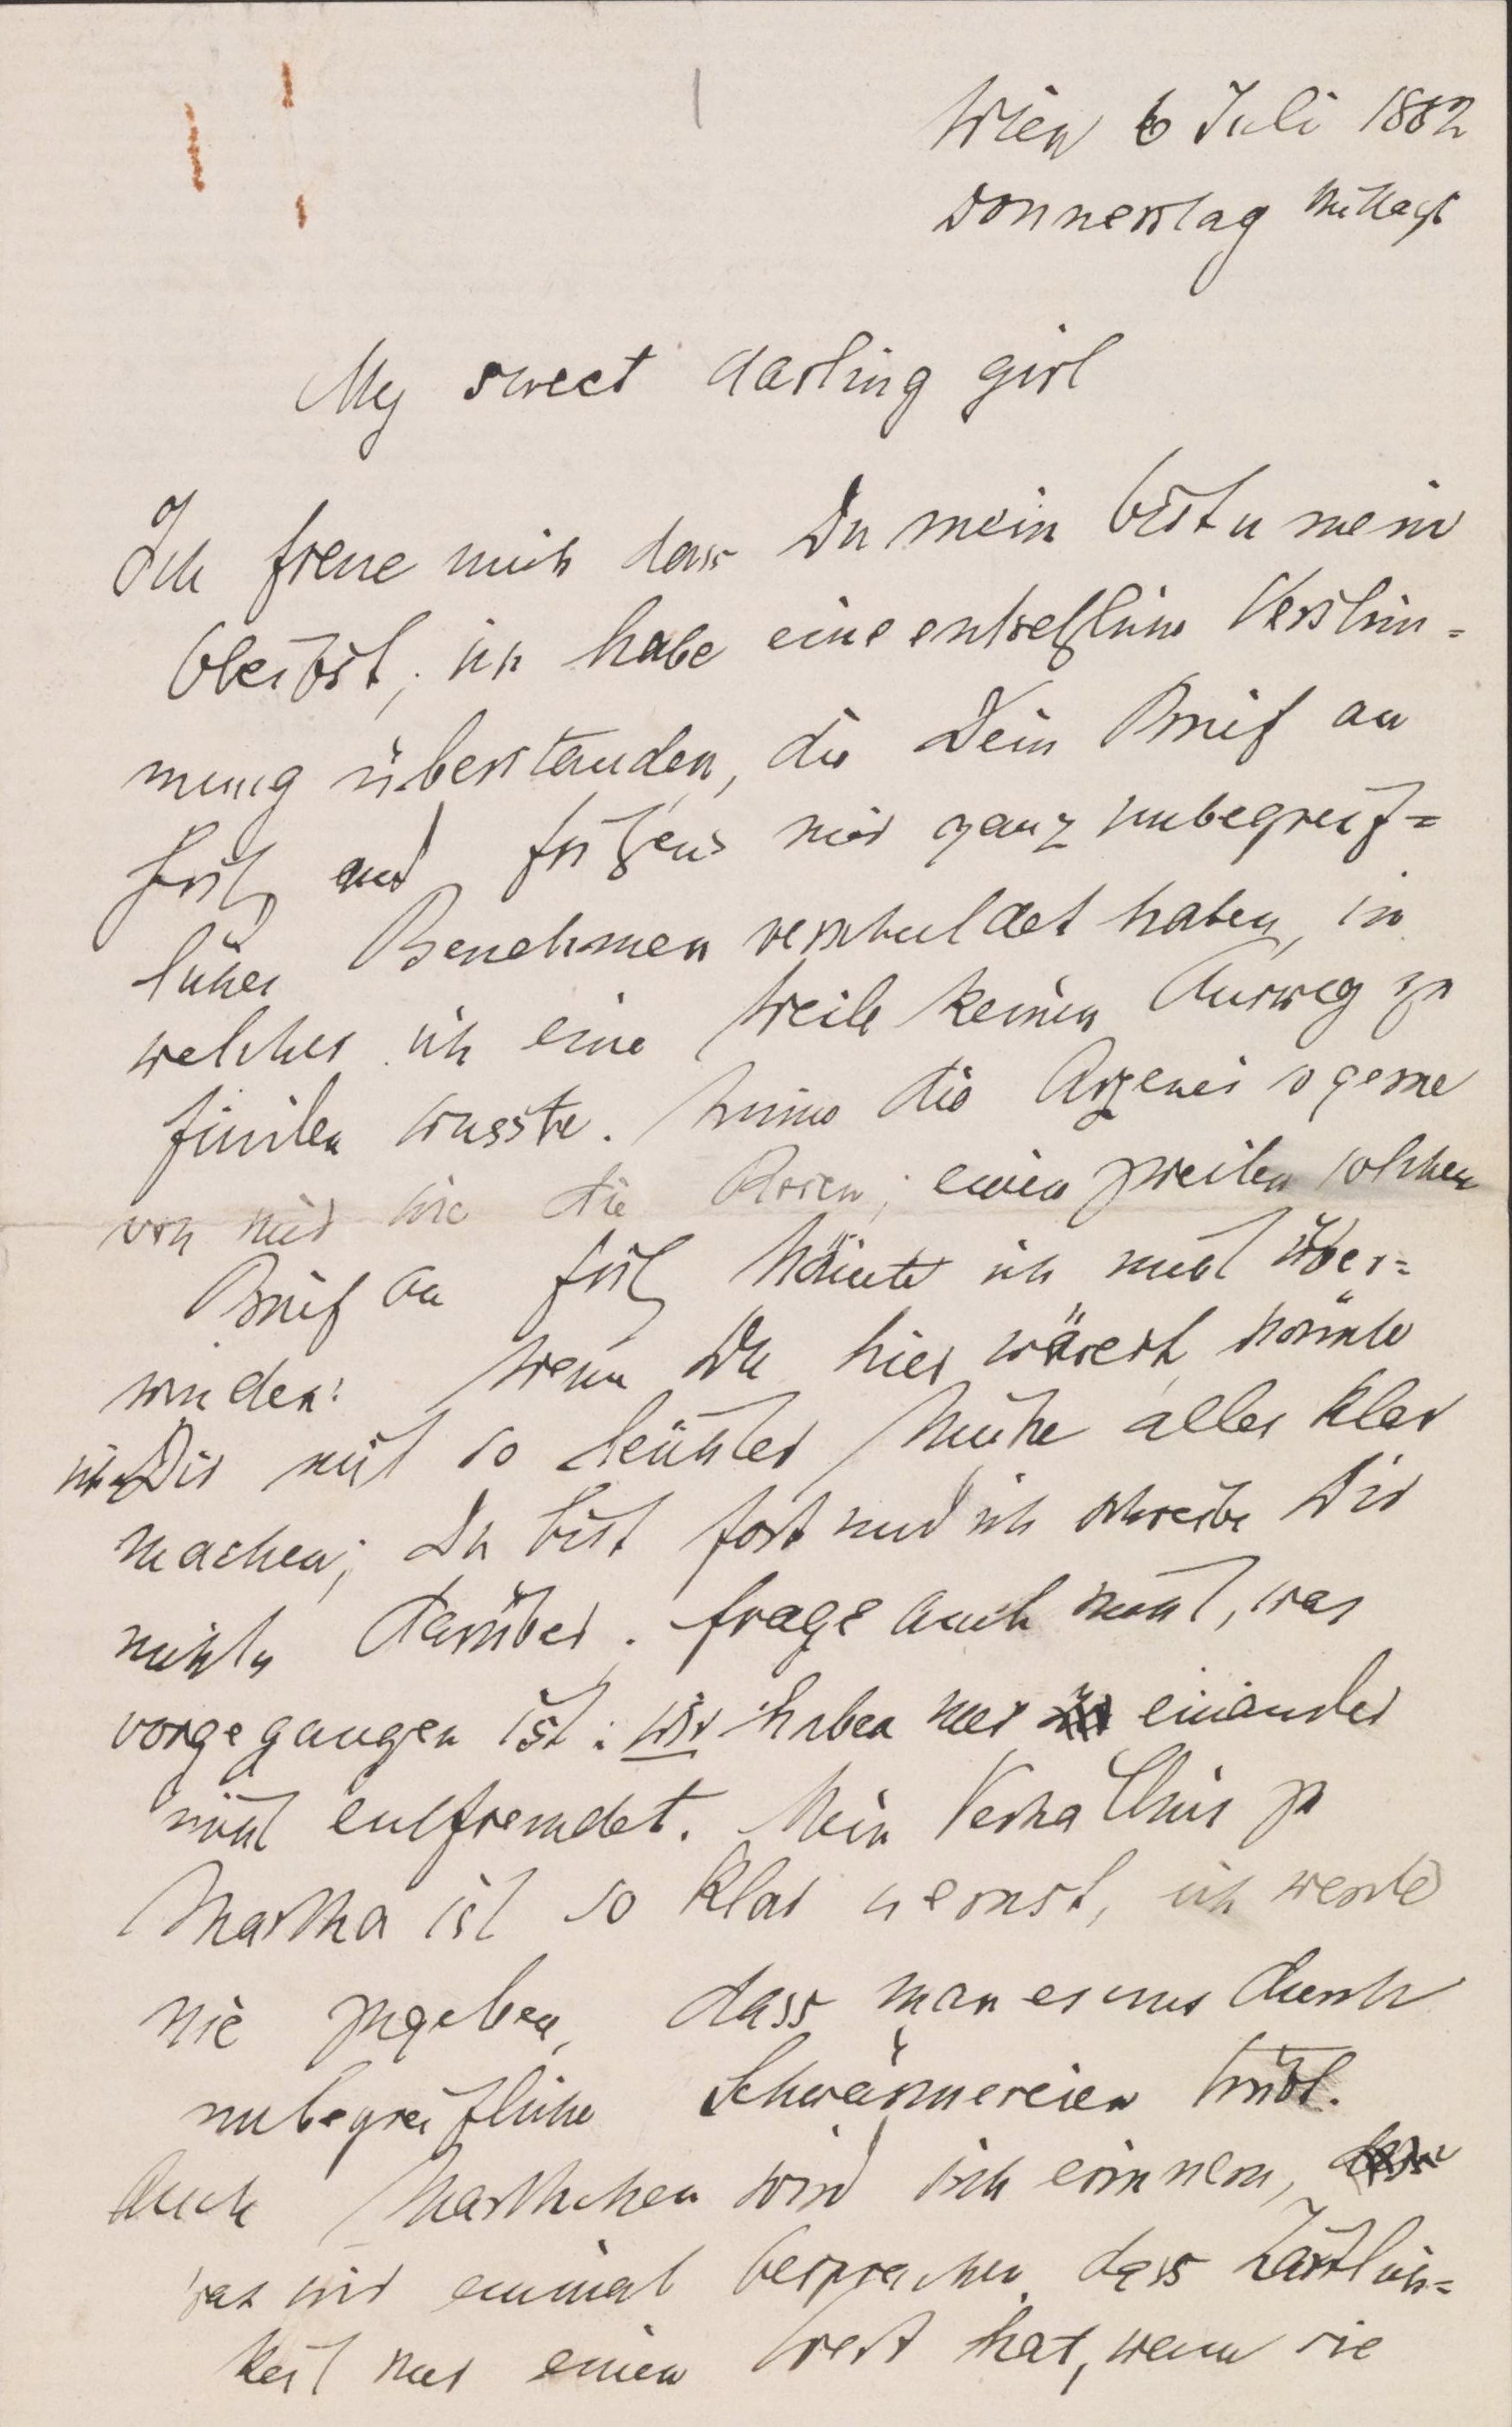 Wien 6 Juli 1882
Donnerstag Mittags
My sweet darling girl
Ich freue mich dass Du mein bist u mein
bleibst; ich habe eine entsetzliche Verstim=
mung überstanden, die Dein Brief an
Fritz und Fritzens mir ganz unbegreif=
liches Benehmen verschuldet haben, in
welcher ich eine Weile keinen Ausweg zu
finden wusste. Nimm die Arzenei so gerne
von mir wie die Rosen; einen zweiten solchen
Brief an Fritz könnte ich nicht über=
winden. Wenn Du hier wärest, könnte
ich Dir mit so leichter Mühe alles klar
machen; Du bist fort und ich schreibe Dir
nichts darüber. Frage auch nicht, was
vorgegangen ist: wir haben uns einander
nicht entfremdet. Mein Verhältnis zu
Martha ist so klar u ernst, ich werde
nie zugeben, dass man es uns durch
unbegreifliche Schwärmereien trübt.
Auch Marthchen wird sich erinnern,
was wir einmal besprachen, dass Zärtlich=
keit nur einen Wert hat, wenn sie